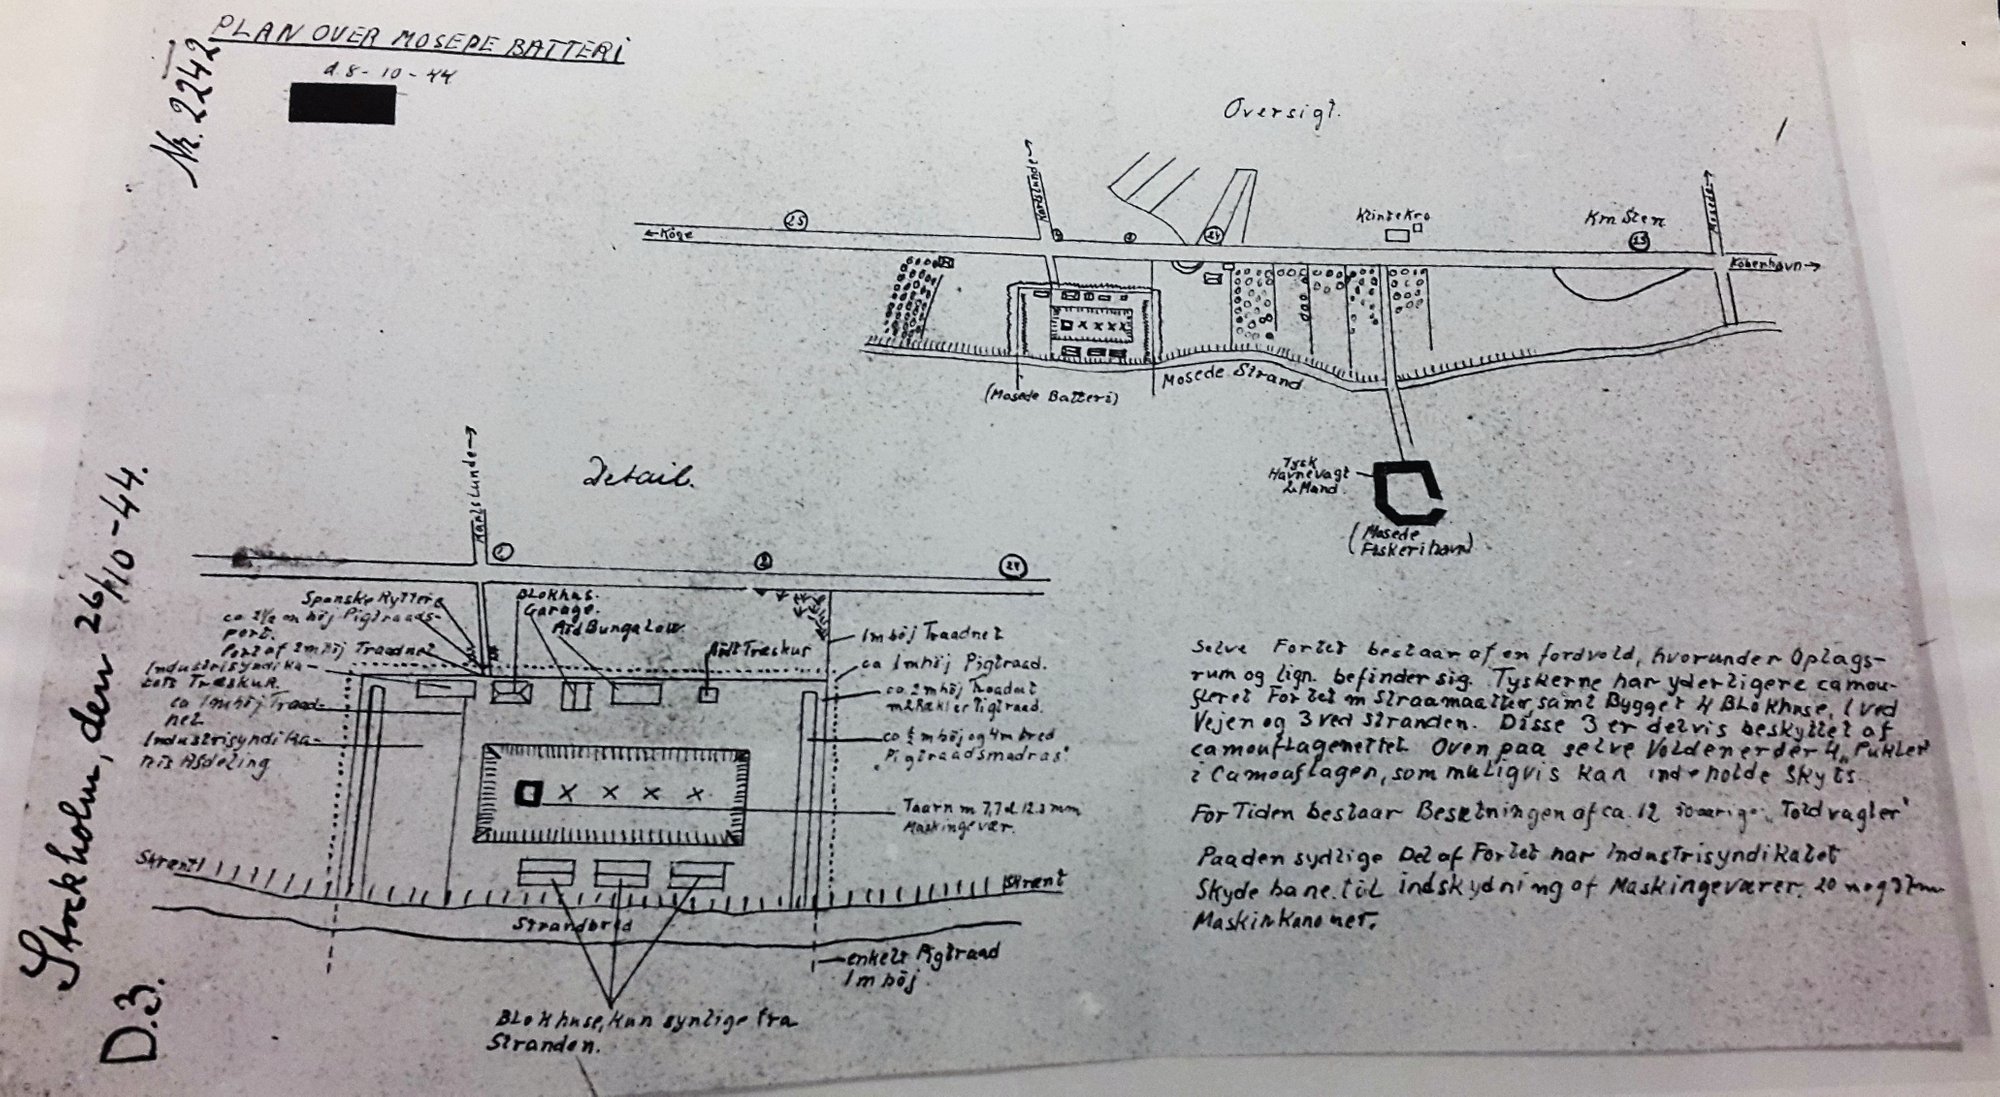 PLAN OVER MOSEDE BATTERI
d. 8-10-44
Nr. 2242
Stockholm, den 26/10-44.
D.3.
Oversigt.
Karlslunde
25
←Köge
24
Klintekro
Km Sten
23
Mosede
Köbenhavn→
(Mosede Batteri)
Mosede Strand
Tysk
Havnevagt
2 Mand.
(Mosede
Fiskerihavn)
Detail.
Karlslunde
24
Spanske Ryttere
ca 2½ m höj Pigtraads-
port.
Port af 2 m höj Traadnet
Industrisyndika-
tets Træskur.
ca 1 m höj Traad-
net
Industrisyndika-
Afdeling
Blokhus.
Garage.
Bungalow.
Træskur
1 m höj Traadnet
ca 1 m höj Pigtraad.
ca 2 m höj Traadnet
m 2 Rækker Pigtraad.
ca ½ m höj og 4 m bred
"Pigtraadsmadras"
Taarn m 7,7 el 12.3 mm
Maskingevær.
Skrænt
Skrænt
Strandbred
enkelt Pigtraad
1 m höj.
Blokhuse, kun synlige fra
Stranden.
Selve Fortet bestaar af en Jordvold, hvorunder Oplags-
rum og lign. befinder sig. Tyskerne har yderligere camou-
fleret Fortet m Straamaatter, samt Bygget 4 Blokhuse, 1 ved
Vejen og 3 ved Stranden. Disse 3 er delvis beskyttet af
camouflagenettet. Oven paa selve Volden er der 4 "Pukler"
i Camouflagen, som muligvis kan indeholde Skyts.
For Tiden bestaar Besætningen af ca. 12 50 aarige "Toldvagter"
Paa den sydlige Del af Fortet har Industrisyndikatet
Skydebane til indskydning af Maskingeværer. 20 og 37 mm
Maskinkanoner.